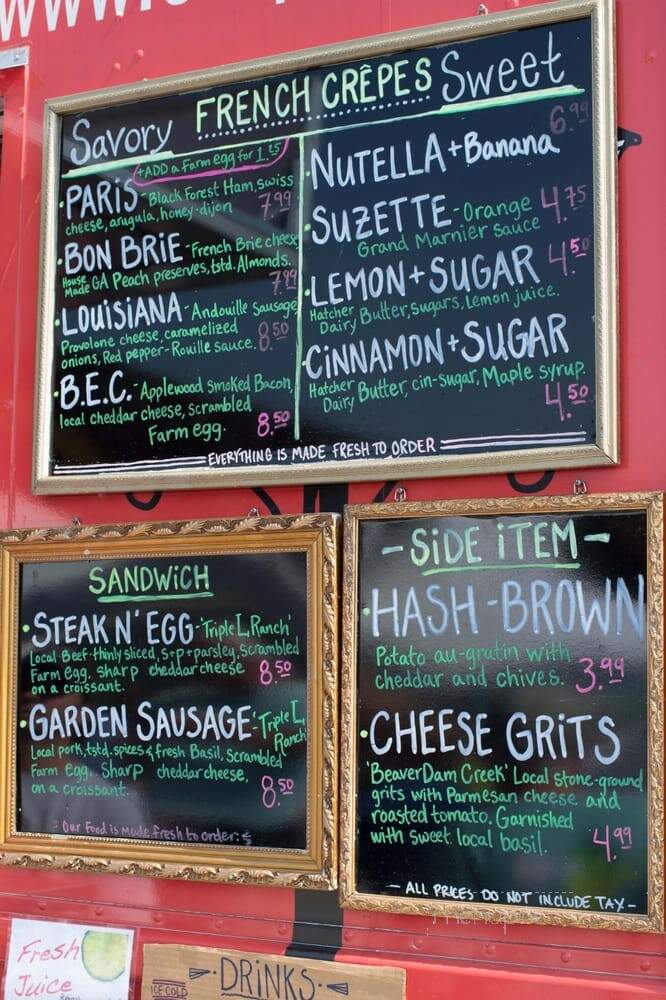 www.
FRENCH CRÊPES
Savory
+ADD a Farm egg for 1.25
PARIS - Black Forest Ham, swiss
cheese, arugula, honey-dijon 7.99
BON BRIE - French Brie cheese
House Made GA Peach preserves, tstd. Almonds.
7.99
LOUISIANA - Andouille Sausage
Provolone cheese, caramelized
onions, Red pepper-Rouille sauce. 8.50
B.E.C. - Applewood smoked Bacon,
local cheddar cheese, scrambled
Farm egg. 8.50
Sweet
6.99
NUTELLA + Banana
SUZETTE - Orange 4.75
Grand Marnier sauce
LEMON + SUGAR 4.50
Hatcher Dairy Butter, sugars, Lemon juice.
CINNAMON + SUGAR
Hatcher Dairy Butter, cin-sugar, Maple syrup.
4.50
EVERYTHING IS MADE FRESH TO ORDER
SANDWICH
STEAK N' EGG - 'Triple L Ranch'
Local Beef-thinly sliced, S+P+parsley, Scrambled
Farm egg. sharp cheddar cheese
on a croissant. 8.50
GARDEN SAUSAGE - 'Triple L Ranch'
Local pork, tstd. spices & fresh Basil, Scrambled
Farm egg. Sharp cheddar cheese,
on a croissant. 8.50
Our Food is made fresh to order
- SIDE ITEM -
HASH-BROWN
Potato au-gratin with
cheddar and chives. 3.99
CHEESE GRITS
'BeaverDam Creek' Local stone-ground
grits with Parmesan cheese and
roasted tomato. Garnished
with sweet local basil. 4.99
- ALL PRICES DO NOT INCLUDE TAX -
Fresh
Juice
ICE COLD
DRINKS